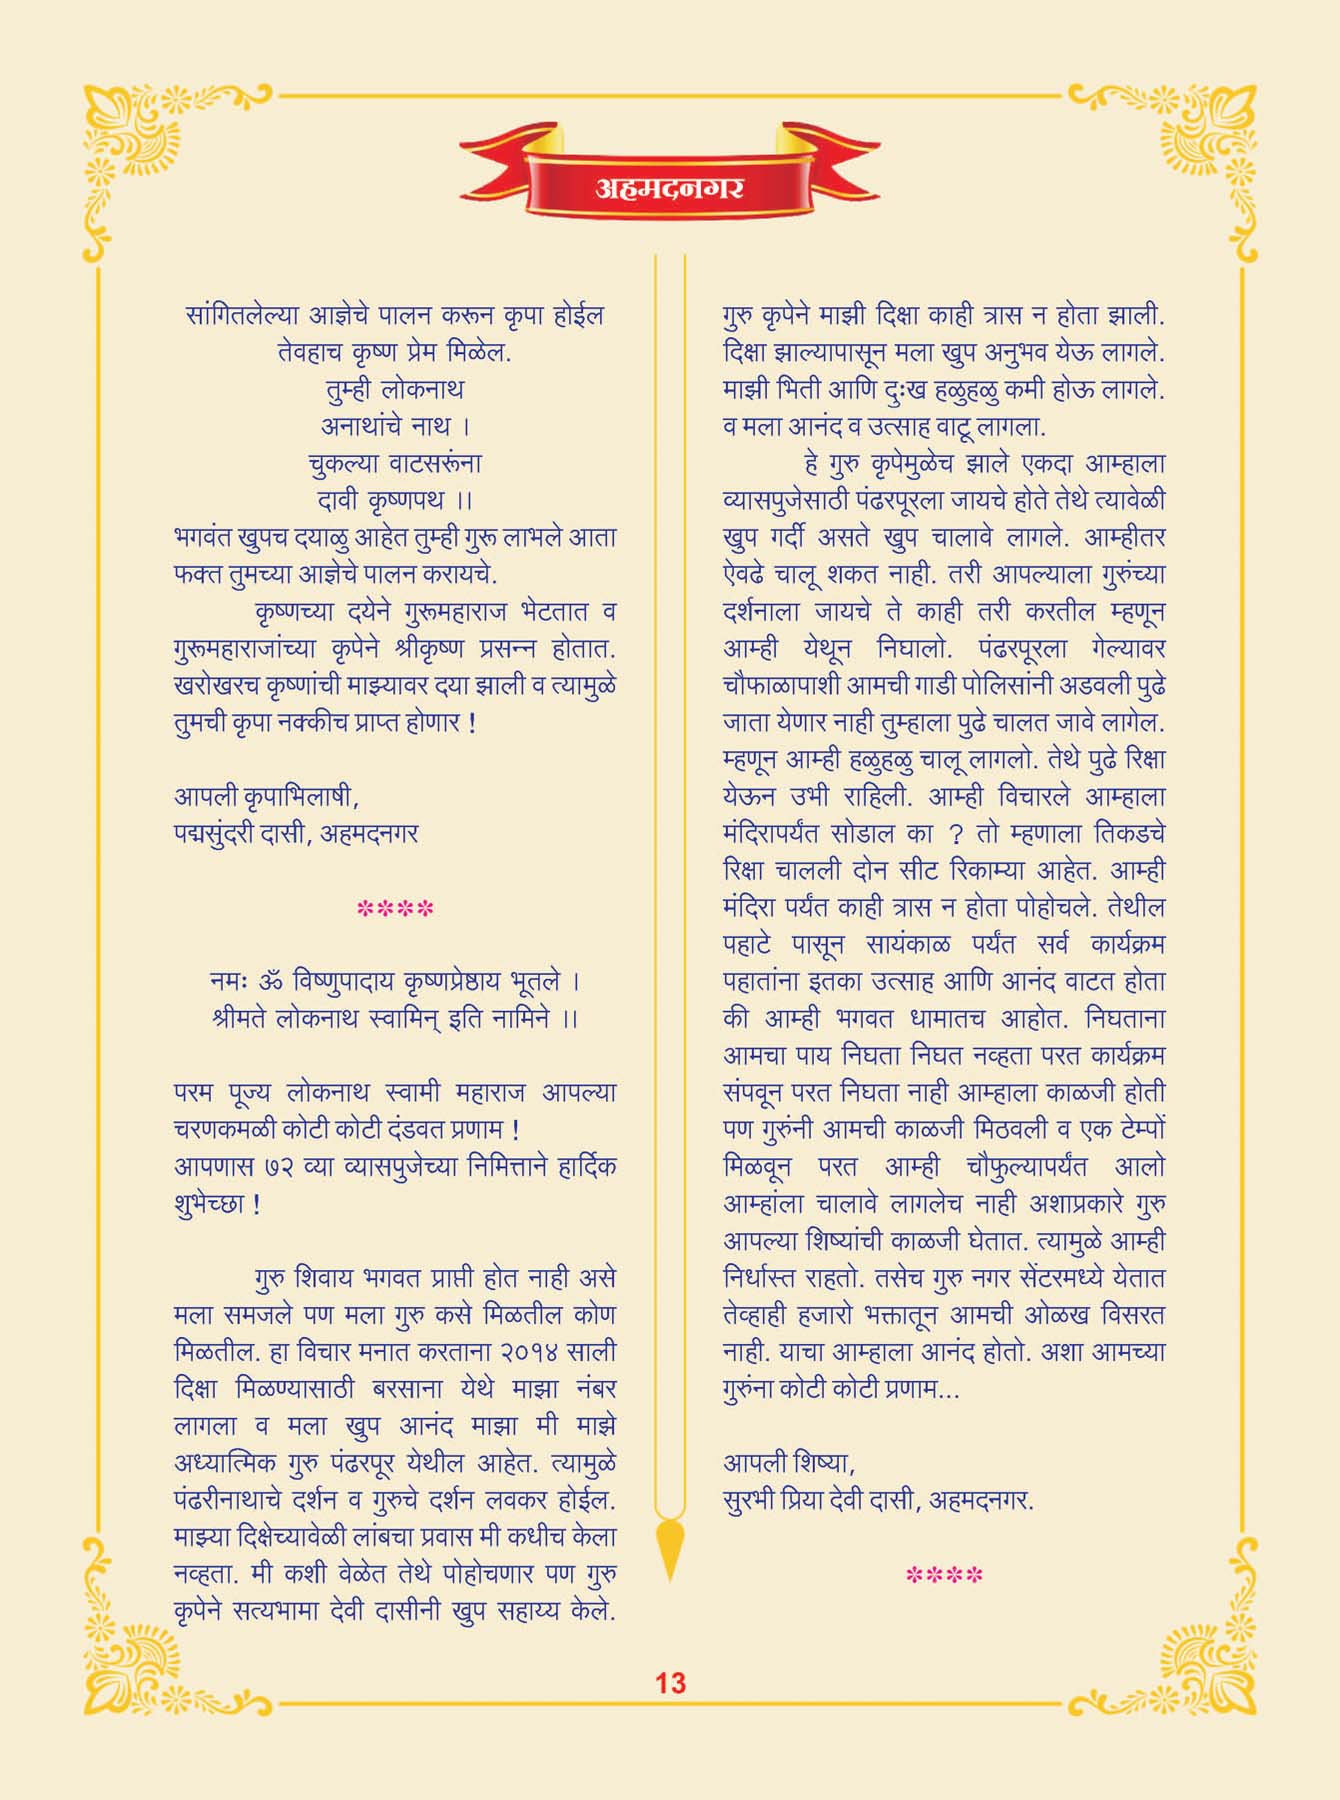 अहमदनगर
सांगितलेल्या आज्ञेचे पालन करून कृपा होईल
तेवहाच कृष्ण प्रेम मिळेल.
तुम्ही लोकनाथ
अनाथांचे नाथ ।
चुकल्या वाटसरूंना
दावी कृष्णपथ ।।
भगवंत खुपच दयाळु आहेत तुम्ही गुरू लाभले आता
फक्त तुमच्या आज्ञेचे पालन करायचे.
कृष्णच्या दयेने गुरूमहाराज भेटतात व
गुरूमहाराजांच्या कृपेने श्रीकृष्ण प्रसन्न होतात.
खरोखरच कृष्णांची माझ्यावर दया झाली व त्यामुळे
तुमची कृपा नक्कीच प्राप्त होणार !
आपली कृपाभिलाषी,
पद्मसुंदरी दासी, अहमदनगर
****
नमः ॐ विष्णुपादाय कृष्णप्रेष्ठाय भूतले ।
श्रीमते लोकनाथ स्वामिन् इति नामिने ।।
परम पूज्य लोकनाथ स्वामी महाराज आपल्या
चरणकमळी कोटी कोटी दंडवत प्रणाम !
आपणास ७२ व्या व्यासपुजेच्या निमित्ताने हार्दिक
शुभेच्छा !
गुरु शिवाय भगवत प्राप्ती होत नाही असे
मला समजले पण मला गुरु कसे मिळतील कोण
मिळतील. हा विचार मनात करताना २०१४ साली
दिक्षा मिळण्यासाठी बरसाना येथे माझा नंबर
लागला व मला खुप आनंद माझा मी माझे
अध्यात्मिक गुरु पंढरपूर येथील आहेत. त्यामुळे
पंढरीनाथाचे दर्शन व गुरुचे दर्शन लवकर होईल.
माझ्या दिक्षेच्यावेळी लांबचा प्रवास मी कधीच केला
नव्हता. मी कशी वेळेत तेथे पोहोचणार पण गुरु
कृपेने सत्यभामा देवी दासीनी खुप सहाय्य केले.
गुरु कृपेने माझी दिक्षा काही त्रास न होता झाली.
दिक्षा झाल्यापासून मला खुप अनुभव येऊ लागले.
माझी भिती आणि दुःख हळुहळु कमी होऊ लागले.
व मला आनंद व उत्साह वाटू लागला.
हे गुरु कृपेमुळेच झाले एकदा आम्हाला
व्यासपुजेसाठी पंढरपूरला जायचे होते तेथे त्यावेळी
खुप गर्दी असते खुप चालावे लागले. आम्हीतर
ऐवढे चालू शकत नाही. तरी आपल्याला गुरुंच्या
दर्शनाला जायचे ते काही तरी करतील म्हणून
आम्ही येथून निघालो. पंढरपूरला गेल्यावर
चौफाळापाशी आमची गाडी पोलिसांनी अडवली पुढे
जाता येणार नाही तुम्हाला पुढे चालत जावे लागेल.
म्हणून आम्ही हळुहळु चालू लागलो. तेथे पुढे रिक्षा
येऊन उभी राहिली. आम्ही विचारले आम्हाला
मंदिरापर्यंत सोडाल का ? तो म्हणाला तिकडचे
रिक्षा चालली दोन सीट रिकाम्या आहेत. आम्ही
मंदिरा पर्यंत काही त्रास न होता पोहोचले. तेथील
पहाटे पासून सायंकाळ पर्यंत सर्व कार्यक्रम
पहातांना इतका उत्साह आणि आनंद वाटत होता
की आम्ही भगवत धामातच आहोत. निघताना
आमचा पाय निघता निघत नव्हता परत कार्यक्रम
संपवून परत निघता नाही आम्हाला काळजी होती
पण गुरुंनी आमची काळजी मिठवली व एक टेम्पों
मिळवून परत आम्ही चौफुल्यापर्यंत आलो
आम्हांला चालावे लागलेच नाही अशाप्रकारे गुरु
आपल्या शिष्यांची काळजी घेतात. त्यामुळे आम्ही
निर्धास्त राहतो. तसेच गुरु नगर सेंटरमध्ये येतात
तेव्हाही हजारो भक्तातून आमची ओळख विसरत
नाही. याचा आम्हाला आनंद होतो. अशा आमच्या
गुरुंना कोटी कोटी प्रणाम...
आपली शिष्या,
सुरभी प्रिया देवी दासी, अहमदनगर.
****
13